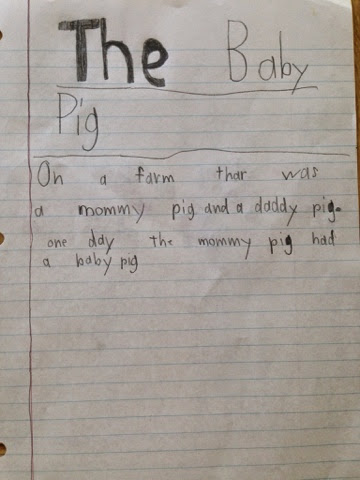 The Baby
Pig
On a farm thar was
a mommy pig and a daddy pig.
one day the mommy pig had
a baby pig